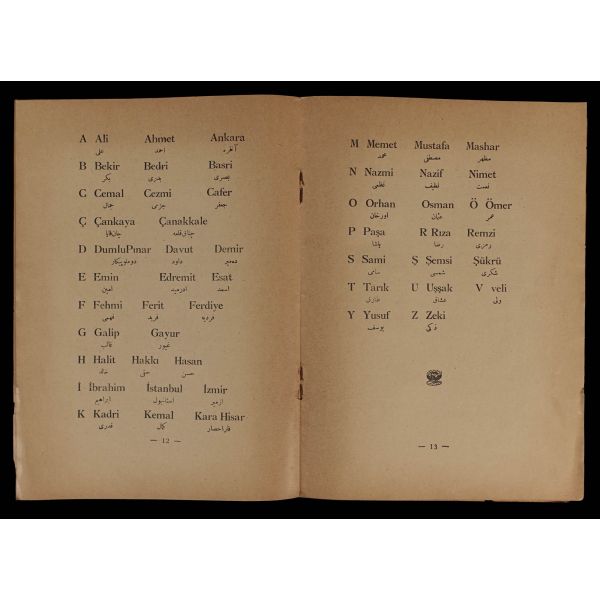 A Ali Ahmet Ankara
علی احمد آنقره
B Bekir Bedri Basri
بكر بدری بصری
C Cemal Cezmi Cafer
جمال جزمی جعفر
Ç Çankaya Çanakkale
چانقایا چناق قلعه
D DumluPınar Davut Demir
دوملوپیكار داود دهمیر
E Emin Edremit Esat
امین ادرمید اسعد
F Fehmi Ferit Ferdiye
فهمی فرید فردیه
G Galip Gayur
غالب غیور
H Halit Hakkı Hasan
خالد حقی حسن
İ İbrahim İstanbul İzmir
ابراهیم استانبول ازمیر
K Kadri Kemal Kara Hisar
قدری كمال قاراحصار
— 12 —
M Memet Mustafa Mashar
محمد مصطفی مظهر
N Nazmi Nazif Nimet
نظمی نظیف نعمت
O Orhan Osman Ö Ömer
اورخان عثمان عمر
P Paşa R Rıza Remzi
پاشا رضا رمزی
S Sami Ş Şemsi Şükrü
سامی شمسی شكری
T Tarık U Uşşak V veli
طارق عشاق ولی
Y Yusuf Z Zeki
یوسف ذكی
— 13 —